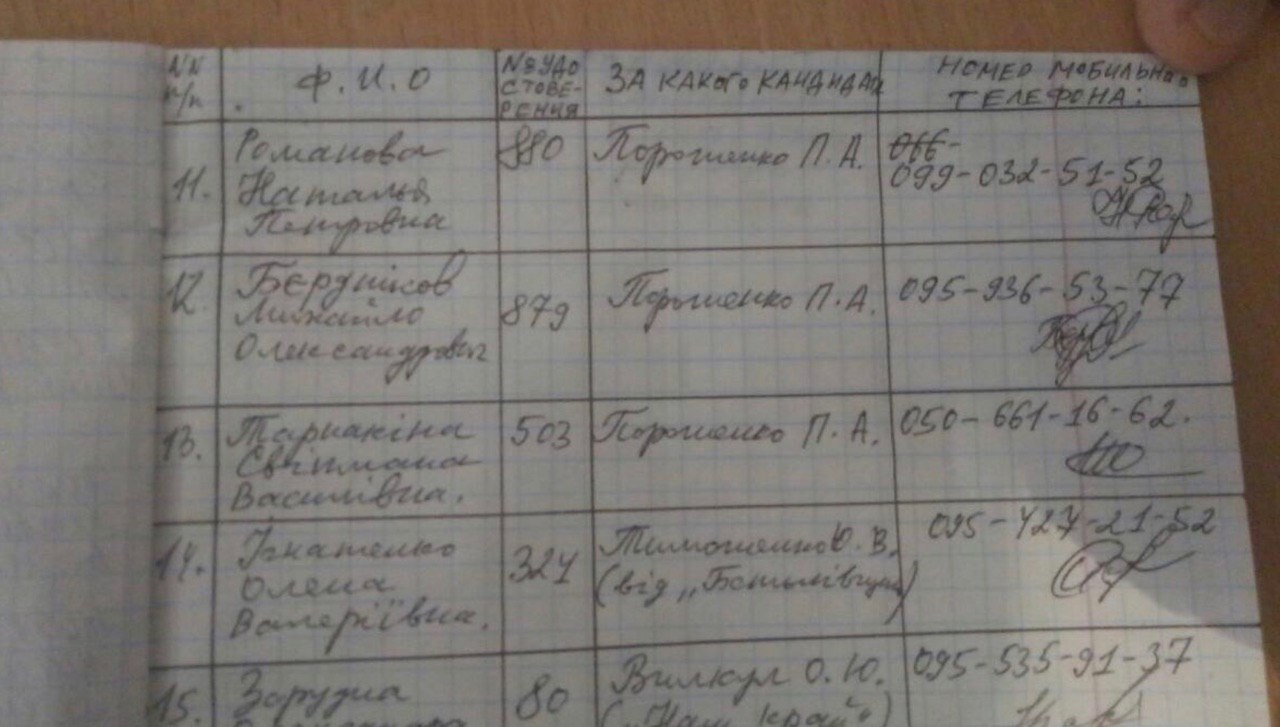 NN п/п
Ф.И.О
№ УДО СТОВЕ- РЕНИЯ
ЗА КАКОГО КАНДИДАТ
НОМЕР МОБИЛЬНОГО
ТЕЛЕФОНА:
11.
Романова
Наталья
Петровна
880
Порошенко П.А.
066-
099-032-51-52
12.
Михайло
Олександрович
879
Порошенко П.А.
095-936-53-77
13.
Світлана
Василівна.
503
Порошенко П.А.
050-661-16-62.
14.
Ігнатенко
Олена
Валеріївна.
324
Тимошенко Ю.В.
(від „Батьківщини)
095-427-21-52
15.
Зарудна
80
Вилкул О.Ю.
(„Наш край")
095-535-91-37